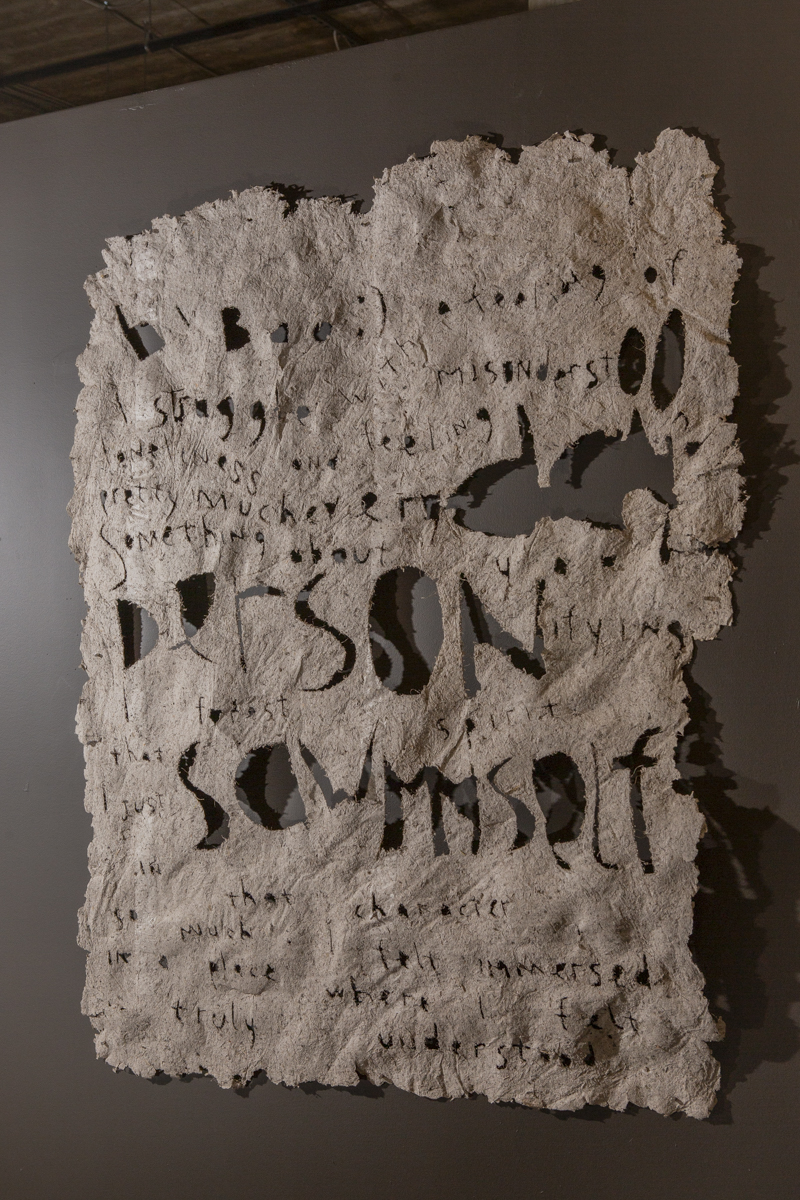 a feeling of
I struggle with misunderstOO
loneliness and feeling
pretty much every
Something about
PERSON ifying
forest spirit
that
SawMYself
I just
IN
that character
so much I felt immersed
IN a place where I felt
truly understood